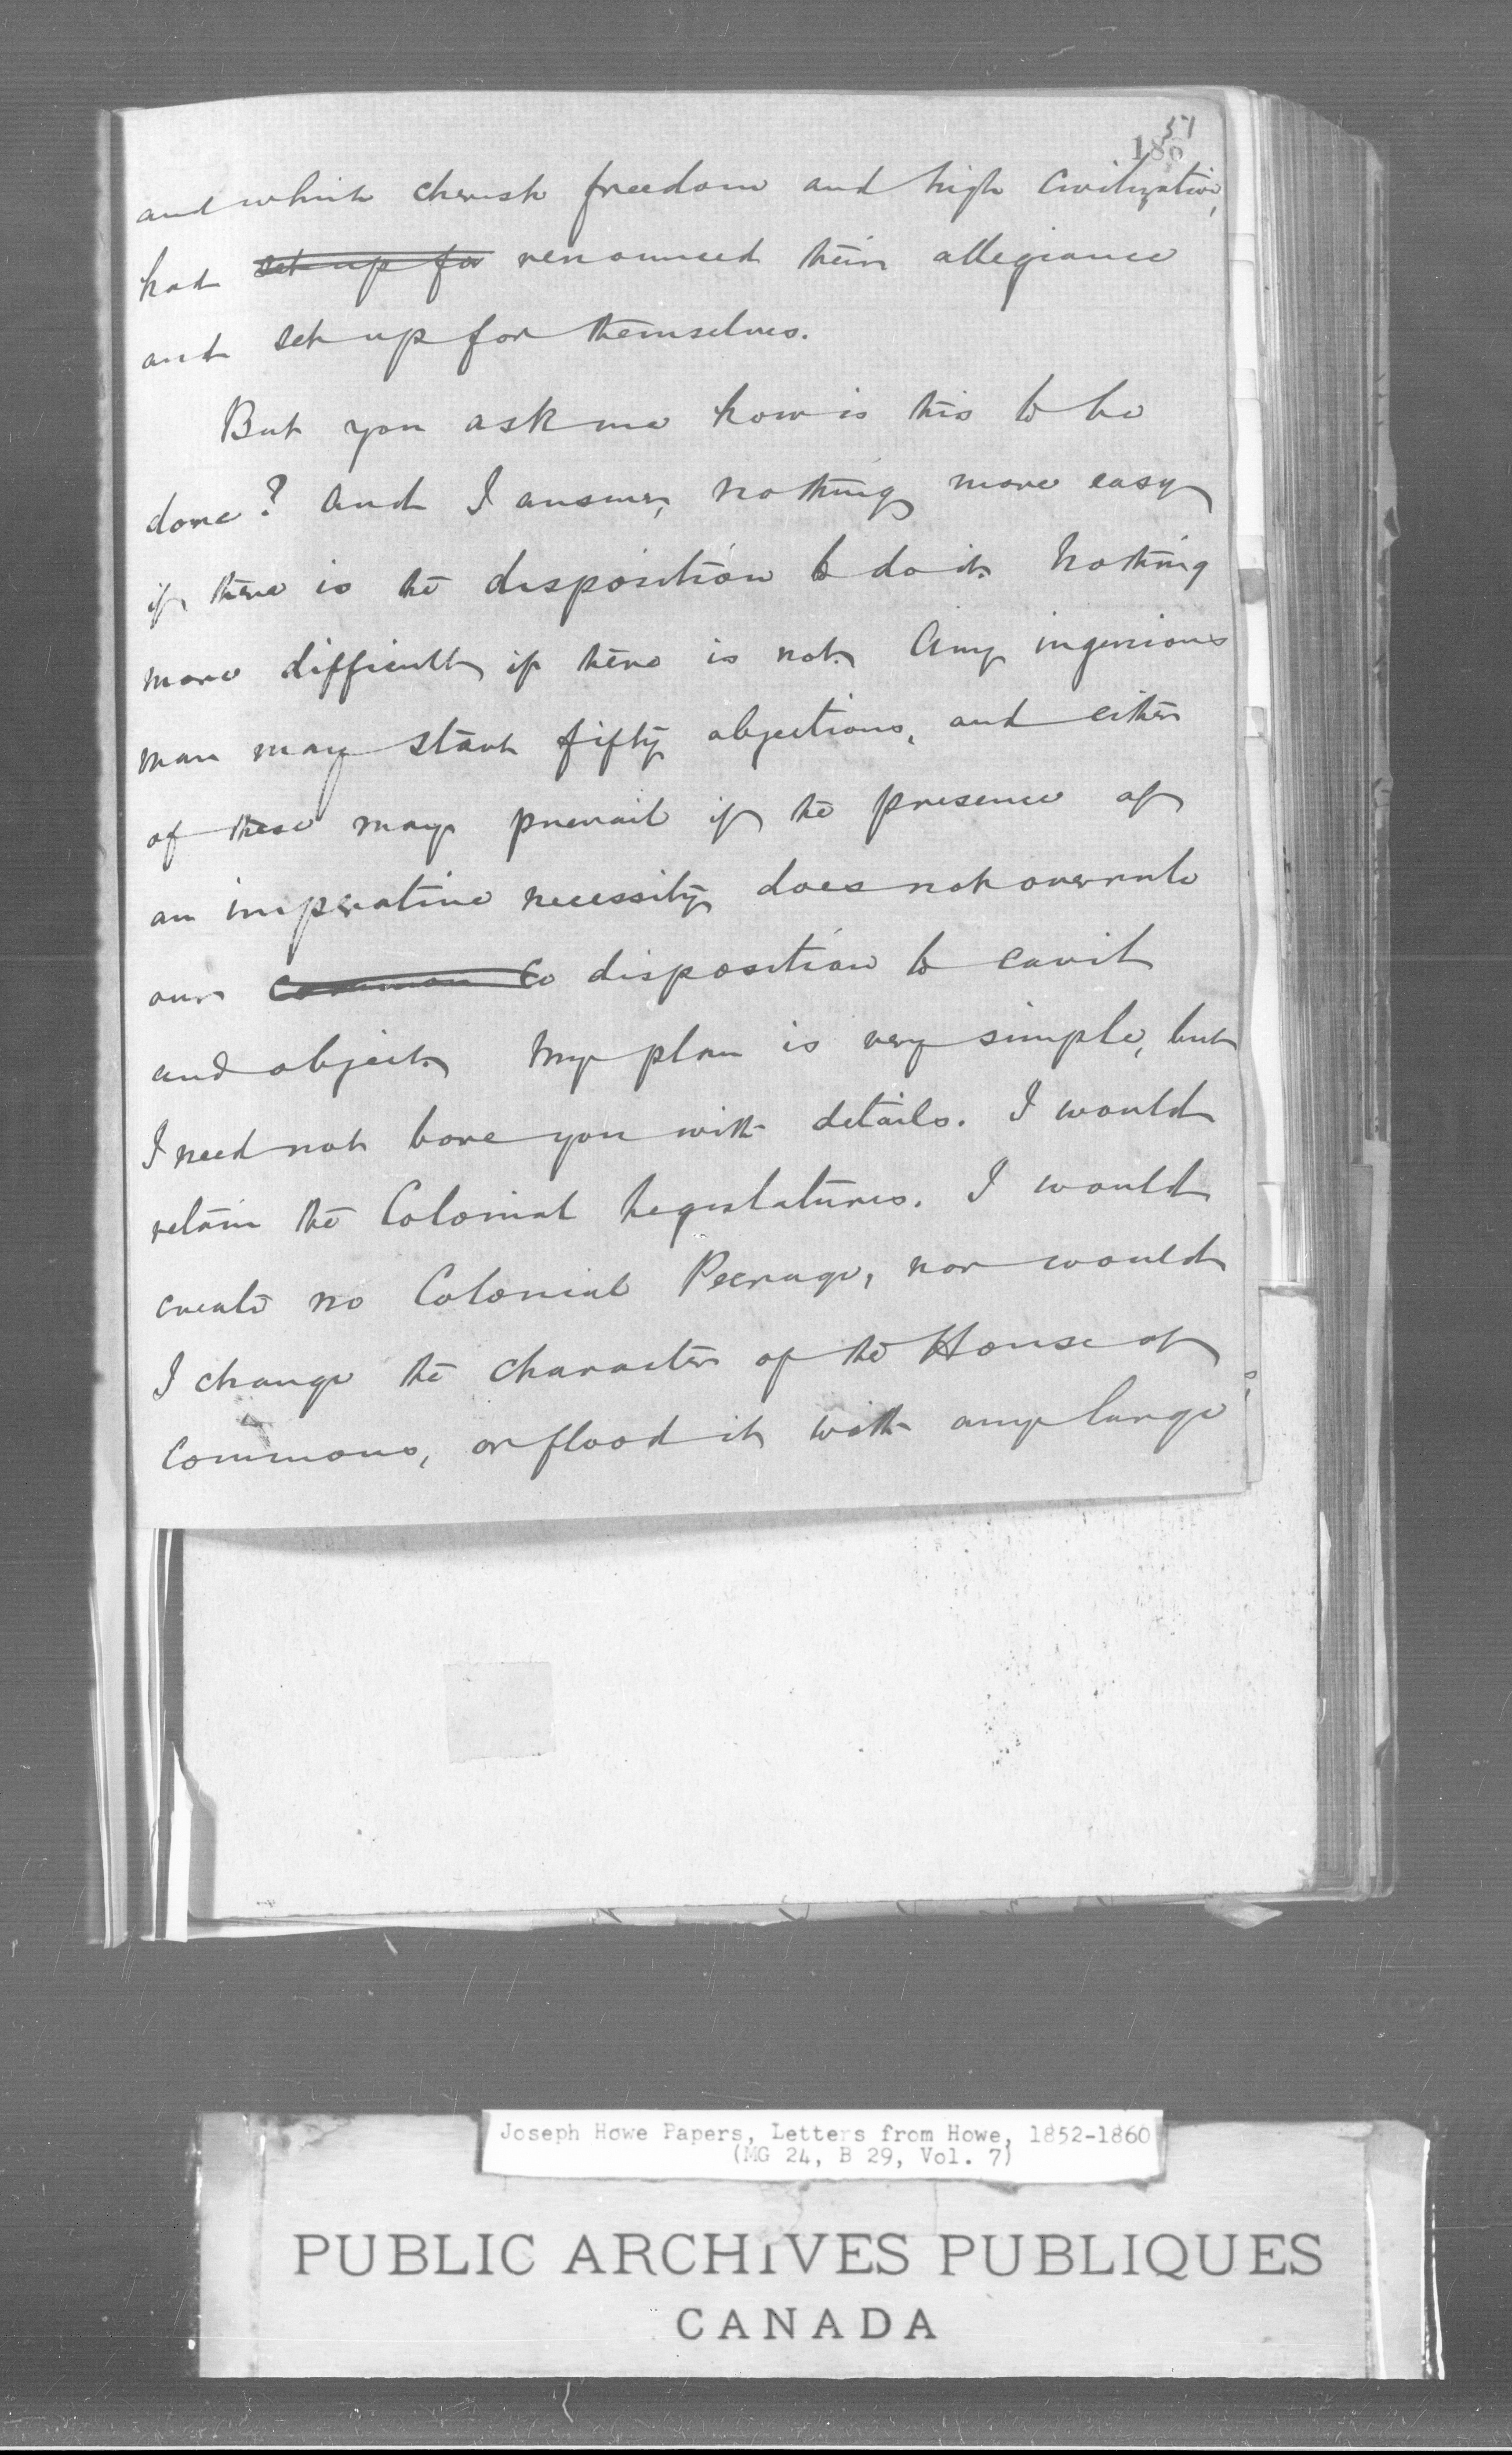 51
186
and which cherish freedom and high civilization,
had set up for renounced their allegiance
and set up for themselves.
But you ask me how is this to be
done? And I answer, nothing more easy
if there is the disposition to do it. Nothing
more difficult if there is not. Any ingenious
man may start fifty objections, and either
of these may prevail if the presence of
an imperative necessity does not overrule
our common to disposition to cavil
and object. My plan is very simple, but
I need not bore you with details. I would
retain the Colonial Legislatures. I would
create no Colonial Peerage, nor would
I change the character of the House of
Commons, or flood it with any large
Joseph Howe Papers, Letters from Howe, 1852-1860
(MG 24, B 29, Vol. 7)
PUBLIC ARCHIVES PUBLIQUES
CANADA